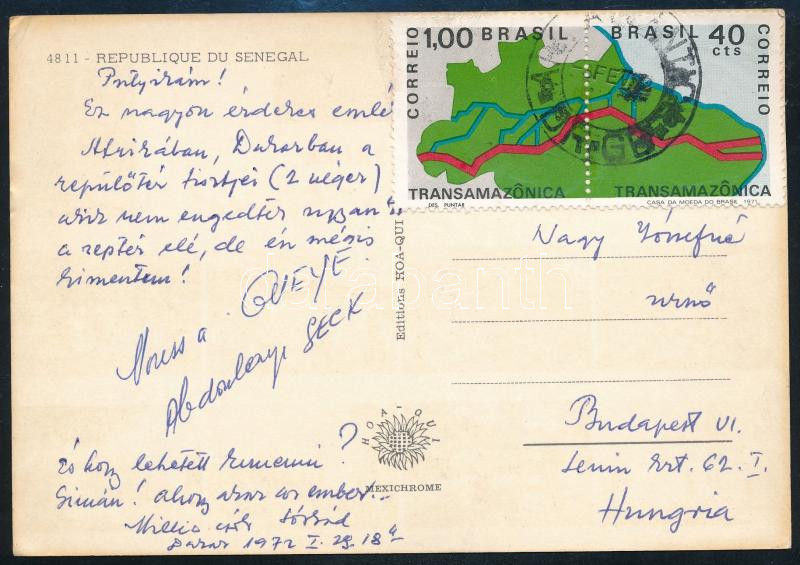 4811 - REPUBLIQUE DU SENEGAL
Putyikám!
Ez nagyon érdekes emlé
Afrikában, Dakarban a
repülőtér tisztjei (2 néger)
akik nem engedtek
a reptér elé, de én mégis
kimentem!
Moussa GUEYE
Abdoulaye SECK
És hogy lehetett kimenni?
Simán! ahogy akar az ember!..
Millió csók
Dakar 1972 I. 29. 18h
Editions HOA-QUI
HOA-QUI
MEXICHROME
CORREIO 1,00 BRASIL
BRASIL 40 cts CORREIO
TRANSAMAZÔNICA
TRANSAMAZÔNICA
DES. PUNTAR
CASA DA MOEDA DO BRASIL 1971
Nagy Józsefné
úrnő
Budapest VI.
Lenin krt. 62. I.
Hungria
darabanth